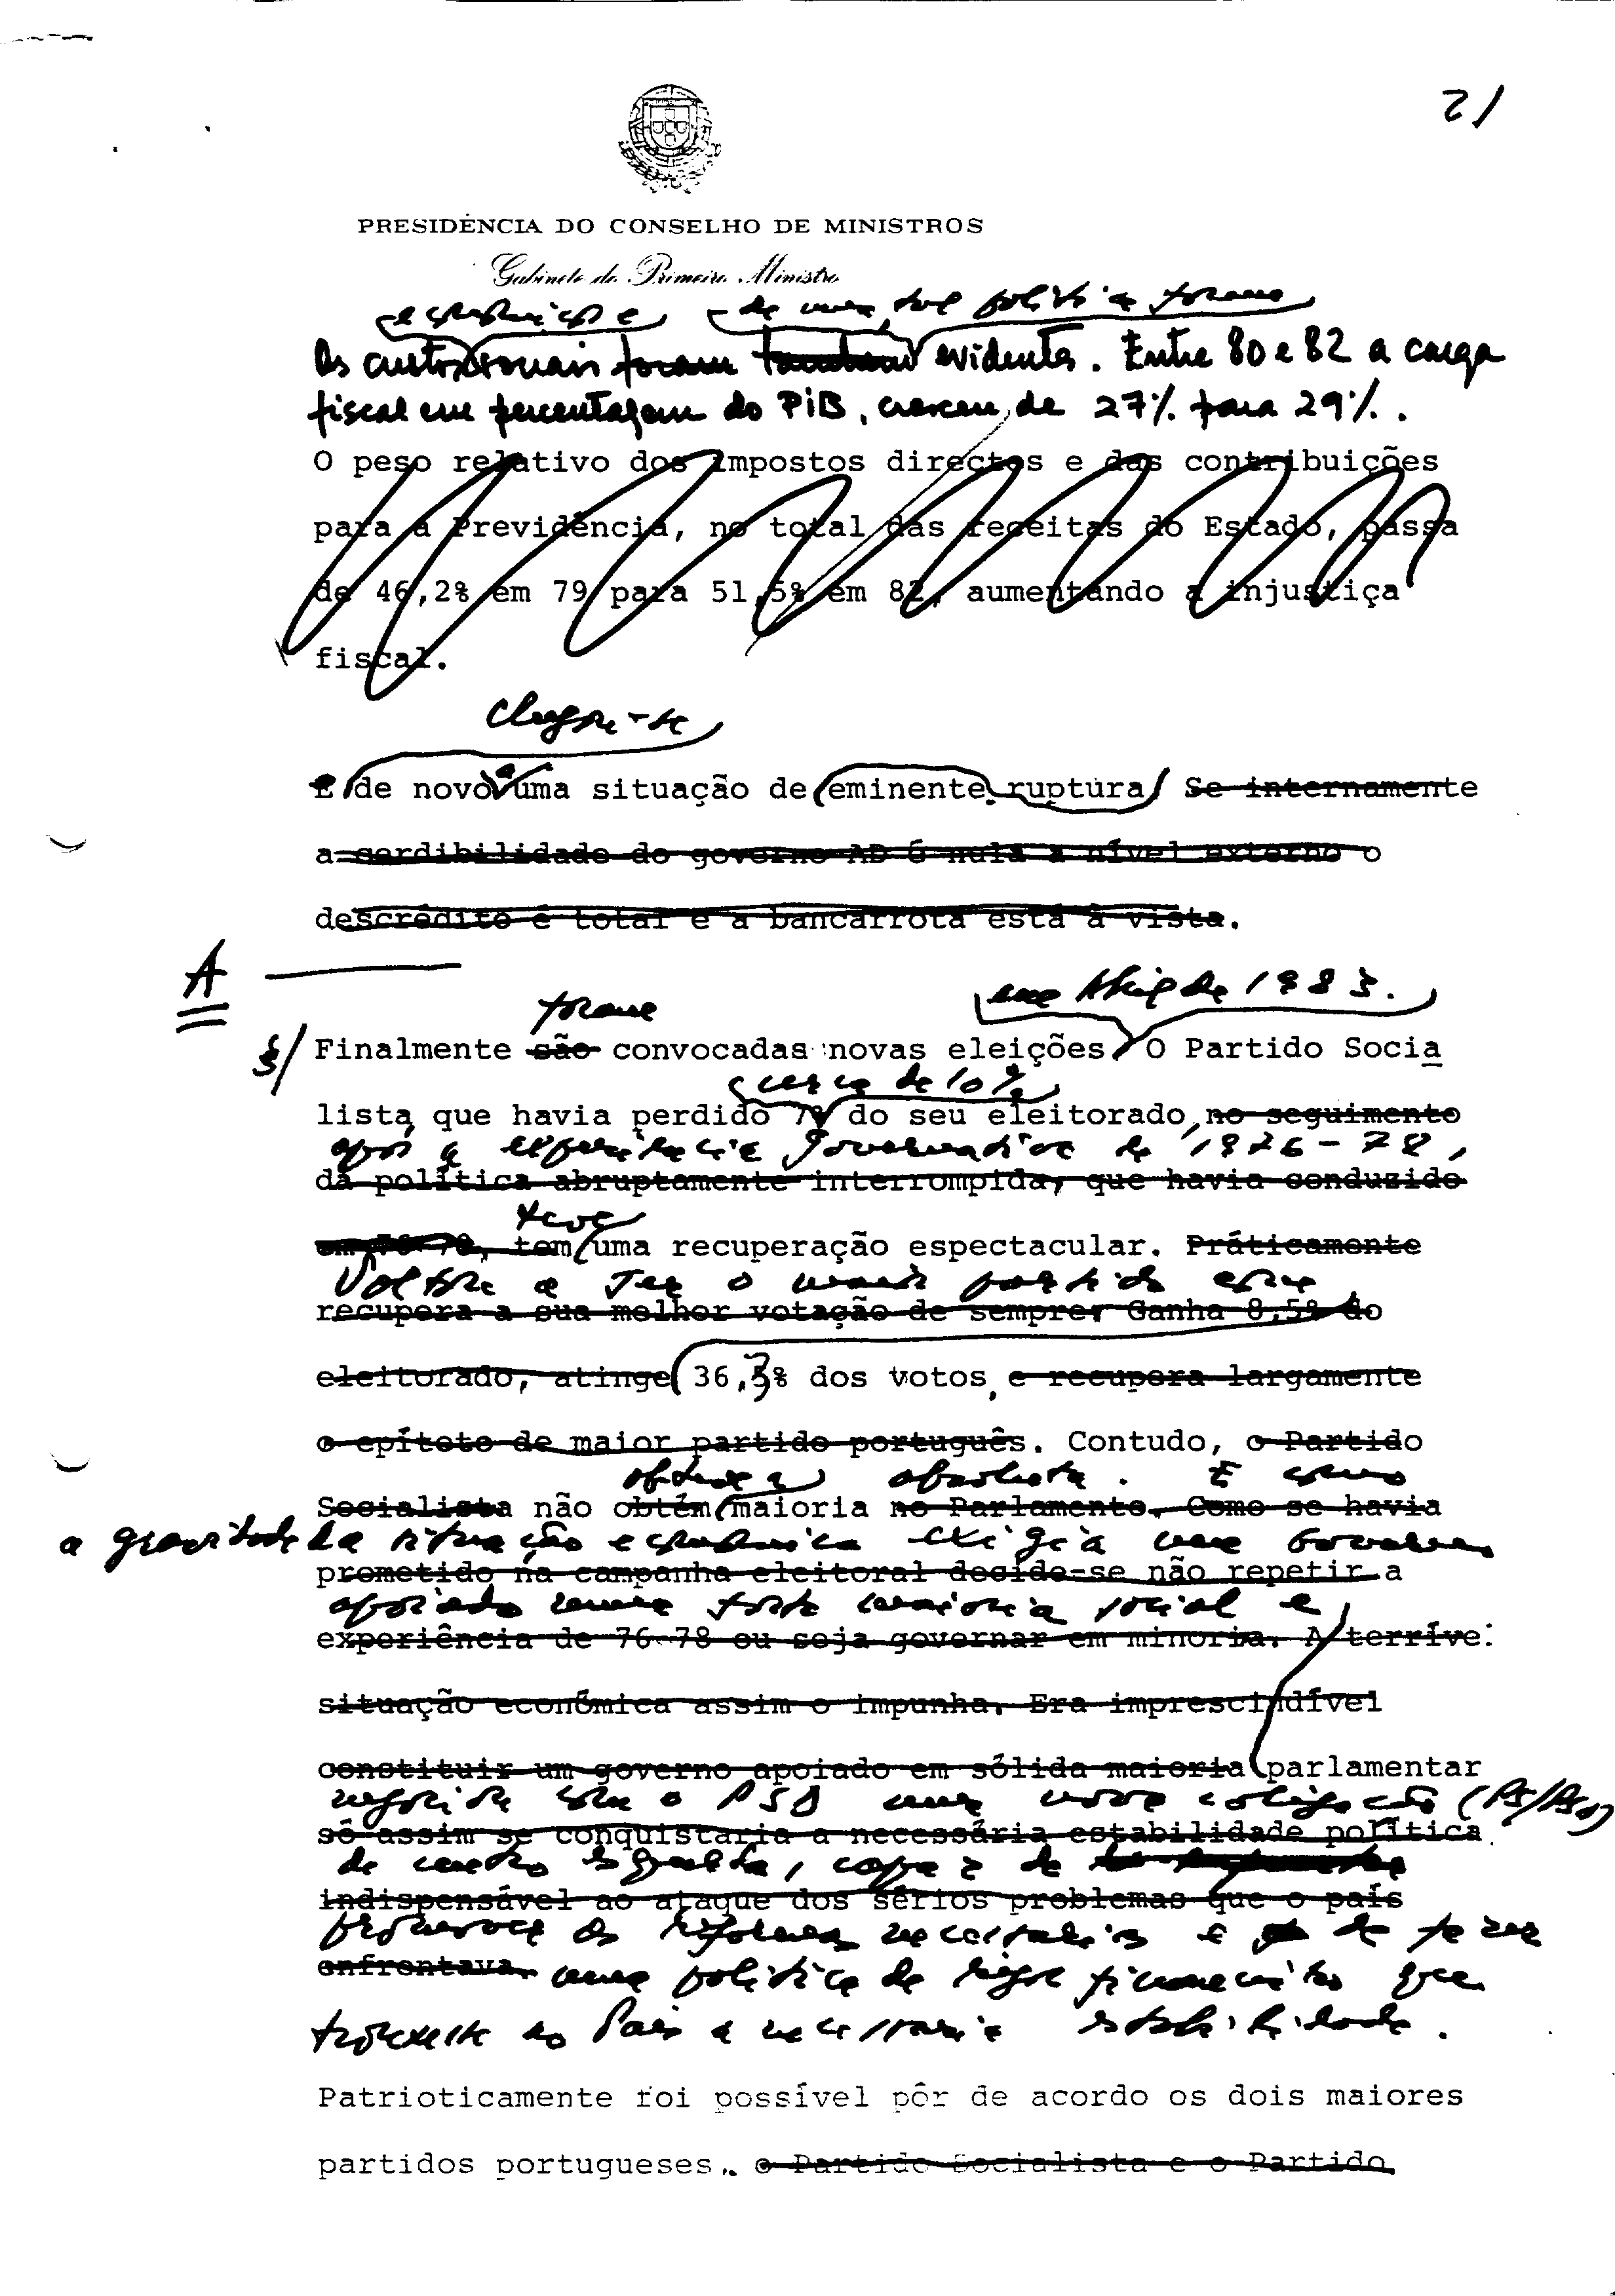 2/
PRESIDÊNCIA DO CONSELHO DE MINISTROS
Gabinete do Primeiro Ministro
económicos e de uma tal política foram
Os custos sociais foram também evidentes. Entre 80 e 82 a carga
fiscal em percentagem do PIB, cresceu, de 27% para 29%.
O peso relativo dos impostos directos e das contribuições
para a Previdência, no total das receitas do Estado, passa
de 46,2% em 79 para 51,5% em 82, aumentando a injustiça
fiscal.
Chegou-se
É de novo a uma situação de eminente ruptura Se internamente
a cerdibilidade do governo AD é nula a nível externo o
descrédito é total e a bancarrota está à vista.
A
foram em Abril de 1983.
§/ Finalmente são convocadas novas eleições O Partido Socia
cerca de 10%
lista, que havia perdido do seu eleitorado, no seguimento
após a experiência governativa de 1976-78,
da política abruptamente interrompida, que havia conduzido
teve
em 76-78, tem uma recuperação espectacular. Práticamente
Voltou a ser o maior partido com
recupera a sua melhor votação de sempre. Ganha 8,5% do
eleitorado, atinge 36,3% dos votos, e recupera largamente
o epíteto de maior partido português. Contudo, o Partido
obteve a absoluta. E como
Socialista não obtém maioria no Parlamento. Como se havia
a gravidade da situação económica exigia um Governo
prometido na campanha eleitoral decide-se não repetir a
apoiado numa forte maioria social e
experiência de 76-78 ou seja governar em minoria. A terríve
situação económica assim o impunha. Era imprescindível
constituir um governo apoiado em sólida maioria parlamentar
negociou com o PSD uma nova coligação (PS/PSD)
só assim se conquistaria a necessária estabilidade política
de centro esquerda, capaz de
indispensável ao ataque dos sérios problemas que o país
promover as reformas necessárias e de fazer
enfrentava. uma política de rigor financeiro que
trouxesse ao País a necessária estabilidade.
Patrioticamente foi possível pôr de acordo os dois maiores
partidos portugueses. o Partido Socialista e o Partido